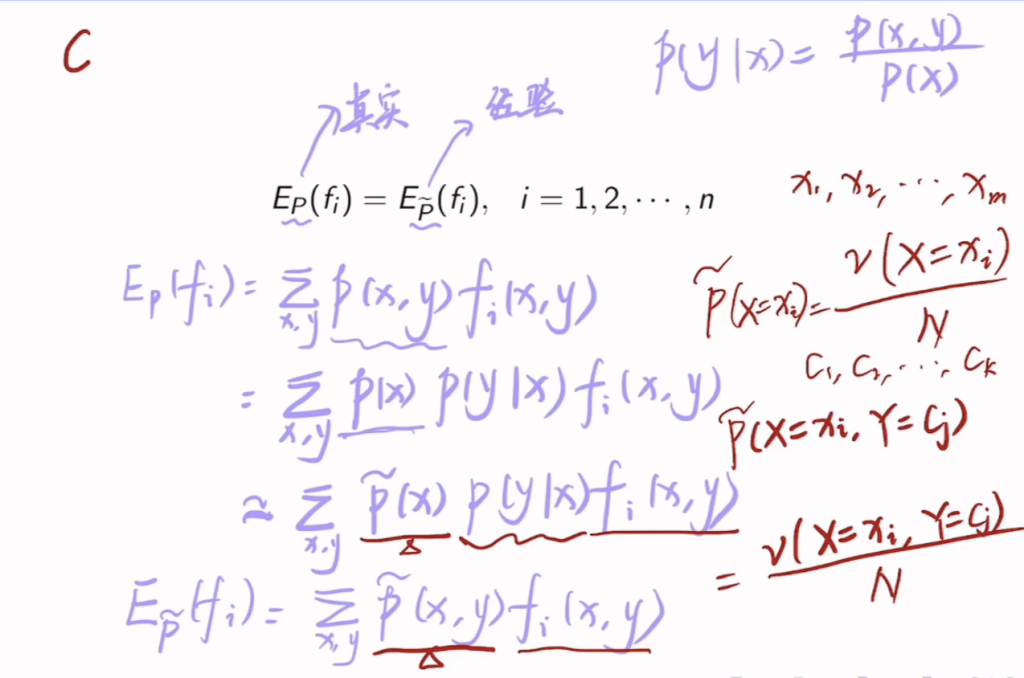 C
p(y|x) = p(x,y) / p(x)
真实 经验
E_P(f_i) = E_P̃(f_i), i = 1, 2, ⋯ , n
x₁, x₂, ⋯, x_m
E_p(f_i) = ∑_{x,y} p(x,y) f_i(x,y)
p̃(X=x_i) = ν(X=x_i) / N
= ∑_{x,y} p(x) p(y|x) f_i(x,y)
C₁, C₂, ⋯, C_k
p̃(X=x_i, Y=C_j)
≃ ∑_{x,y} p̃(x) p(y|x) f_i(x,y)
= ν(X=x_i, Y=C_j) / N
E_p̃(f_i) = ∑_{x,y} p̃(x,y) f_i(x,y)